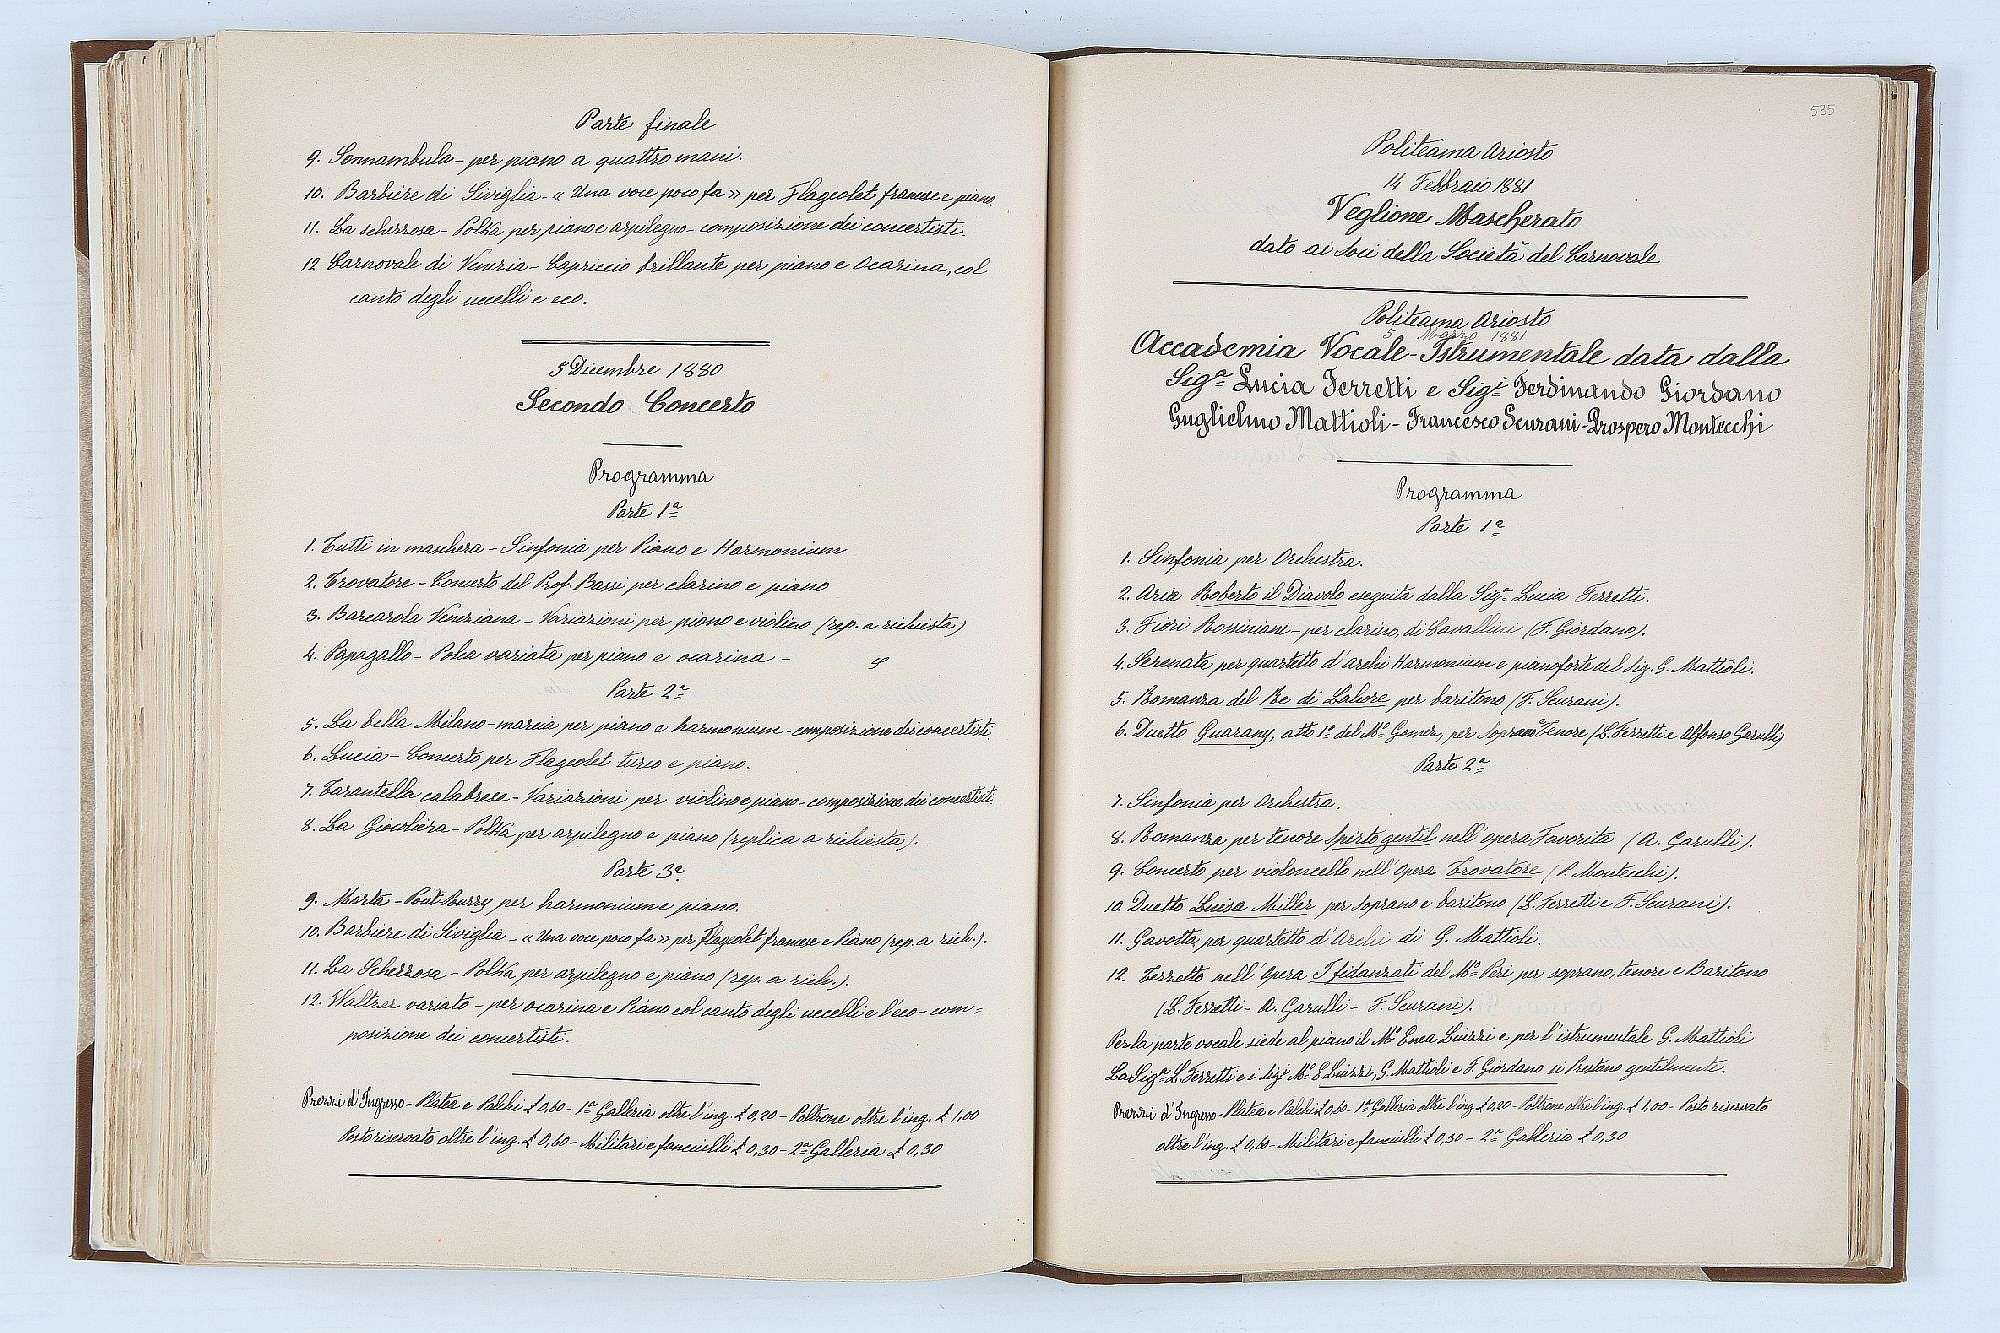 Parte finale
9. Sonnambula - per piano a quattro mani.
10. Barbiere di Siviglia - « Una voce poco fa » per Flageolet francese e piano
11. La scherzosa - Polka per piano e arpilegno - composizione dei concertisti.
12 Carnovale di Venezia - Capriccio brillante per piano e Ocarina, col
canto degli uccelli e eco.
5 Dicembre 1880
Secondo Concerto
Programma
Parte 1ª
1. Tutti in maschera - Sinfonia per Piano e Harmonium
2. Trovatore - Concerto del Prof. Bassi per clarino e piano
3. Barcarola Veneziana - Variazioni per piano e violino (rep. a richiesta)
4. Papagallo - Polca variata per piano e ocarina -
Parte 2ª
5. La bella Milano - marcia per piano e harmonium - composizione dei concertisti
6. Lucia - Concerto per Flageolet turco e piano.
7. Tarantella calabrese - Variazioni per violino e piano - composizione dei concertisti.
8. La Giocoliera - Polka per arpilegno e piano (replica a richiesta).
Parte 3ª
9. Marta - Pout-Purry per harmonium e piano.
10. Barbiere di Siviglia - « Una voce poco fa » per Flageolet francese e Piano (rep. a rich.).
11. La Scherzosa - Polka per arpilegno e piano (rep. a rich.).
12. Waltzer variato - per ocarina e Piano col canto degli uccelli e l'eco - com=
posizione dei concertisti.
Prezzi d'Ingresso - Platea e Palchi £ 0,60 - 1ª Galleria oltre l'ing. £ 0,20 - Poltrone oltre l'ing. £ 1,00
Posto riservato oltre l'ing. £ 0,60 - Militari e fanciulli £ 0,30 - 2ª Galleria £ 0,30
535
Politeama Ariosto
14 Febbraio 1881
Veglione Mascherato
dato ai Soci della Società del Carnovale
Politeama Ariosto
5 Marzo 1881
Accademia Vocale - Istrumentale data dalla
Sigª Lucia Ferretti e Sigi Ferdinando Giordano
Guglielmo Mattioli - Francesco Scurani - Prospero Montecchi
Programma
Parte 1ª
1. Sinfonia per Orchestra.
2. Aria Roberto il Diavolo eseguita dalla Sigª Lucia Ferretti.
3. Fiori Rossiniani - per clarino, di Cavallini (F. Giordano).
4. Serenata per quartetto d'archi Harmonium e pianoforte del Sig. G. Mattioli.
5. Romanza del Re di Lahore per baritono (F. Scurani).
6. Duetto Guarany, atto 1º del Mº Gomez, per Soprano e Tenore (L. Ferretti e Alfonso Garulli)
Parte 2ª
7. Sinfonia per Orchestra.
8. Romanza per tenore Spirto gentil nell'opera Favorita (A. Garulli).
9. Concerto per violoncello nell'Opera Trovatore (P. Montecchi).
10. Duetto Luisa Miller per Soprano e baritono (L. Ferretti e F. Scurani).
11. Gavotta, per quartetto d'Archi di G. Mattioli.
12. Terzetto nell'Opera I fidanzati del Mº Peri per soprano, tenore e Baritono
(L. Ferretti - A. Garulli - F. Scurani).
Per la parte vocale siede al piano il Mº Enea Liuzzi e per l'istrumentale G. Mattioli
La Sigª L. Ferretti e i Sigi Mº E Liuzzi, G. Mattioli e F. Giordano si prestano gentilmente.
Prezzi d'Ingresso - Platea e Palchi £ 0,60 - 1ª Galleria oltre l'ing. £ 0,20 - Poltrone oltre l'ing. £ 1,00 - Posto riservato
oltre l'ing. £ 0,60 - Militari e fanciulli £ 0,30 - 2ª Galleria £ 0,30